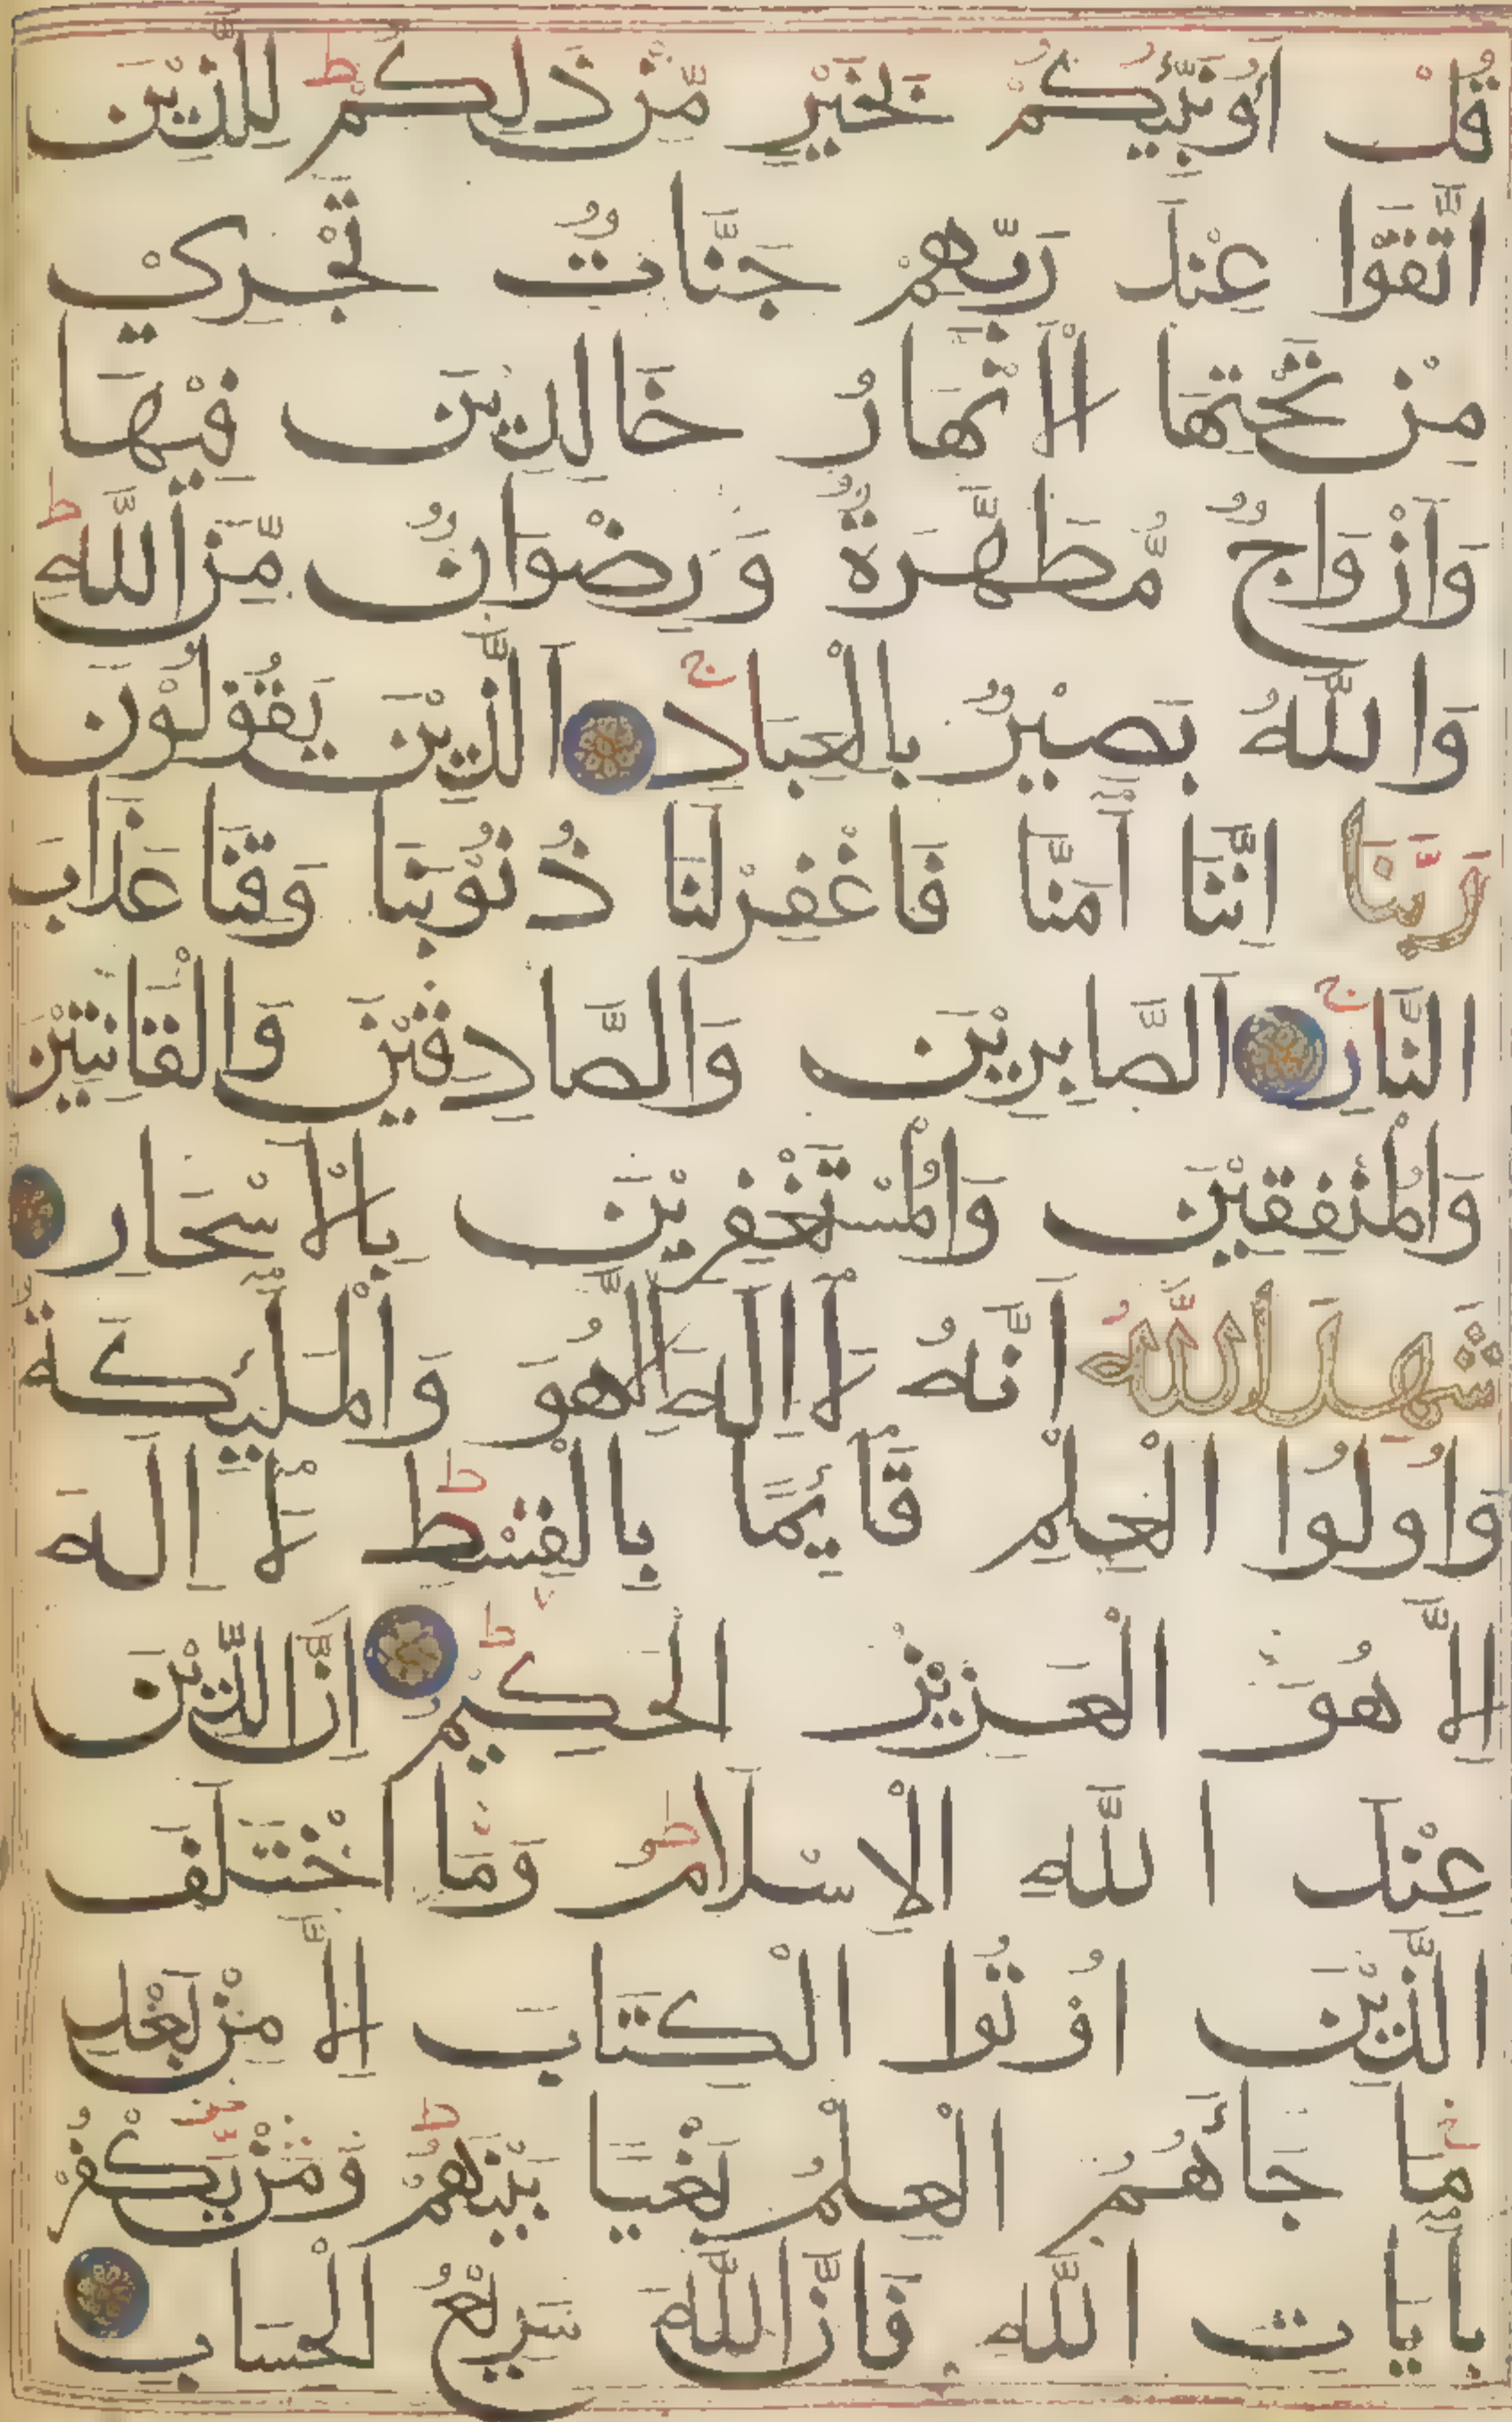 قُلْ أَؤُنَبِّيُكُمْ بِخَيْرٍ مِّنْ ذَلِكُمْ ط لِلَّذِيْنَ
اتَّقَوْا عِنْدَ رَبِّهِمْ جَنَّاتٌ تَجْرِيْ
مِنْ تَحْتِهَا الْاَنْهَارُ خَالِدِيْنَ فِيْهَا
وَاَزْوَاجٌ مُّطَهَّرَةٌ وَرِضْوَانٌ مِّنَ اللَّهِ ط
وَاللَّهُ بَصِيْرٌ بِالْعِبَادِ ج الَّذِيْنَ يَقُوْلُوْنَ
رَبَّنَا اِنَّنَا آمَنَّا فَاغْفِرْلَنَا ذُنُوْبَنَا وَقِنَا عَذَابَ
النَّارِ ج الصَّابِرِيْنَ وَالصَّادِقِيْنَ وَالْقَانِتِيْنَ
وَالْمُنْفِقِيْنَ وَالْمُسْتَغْفِرِيْنَ بِالْاَسْحَارِ
شَهِدَ اللَّهُ اَنَّهُ لَا اِلَهَ اِلَّا هُوَ وَالْمَلٰٓيِكَةُ
وَاُولُوا الْعِلْمِ قَآيِمًا بِالْقِسْطِ ط لَآ اِلَهَ
اِلَّا هُوَ الْعَزِيْزُ الْحَكِيْمُ ط اِنَّ الدِّيْنَ
عِنْدَ اللَّهِ الْاِسْلَامُ وَمَا اخْتَلَفَ
الَّذِيْنَ اُوْتُوا الْكِتَابَ اِلَّا مِنْ بَعْدِ
مَا جَآءَهُمُ الْعِلْمُ بَغْيًا بَيْنَهُمْ ط وَمَنْ يَكْفُرْ
بِآيَاتِ اللَّهِ فَاِنَّ اللَّهَ سَرِيْعُ الْحِسَابِ